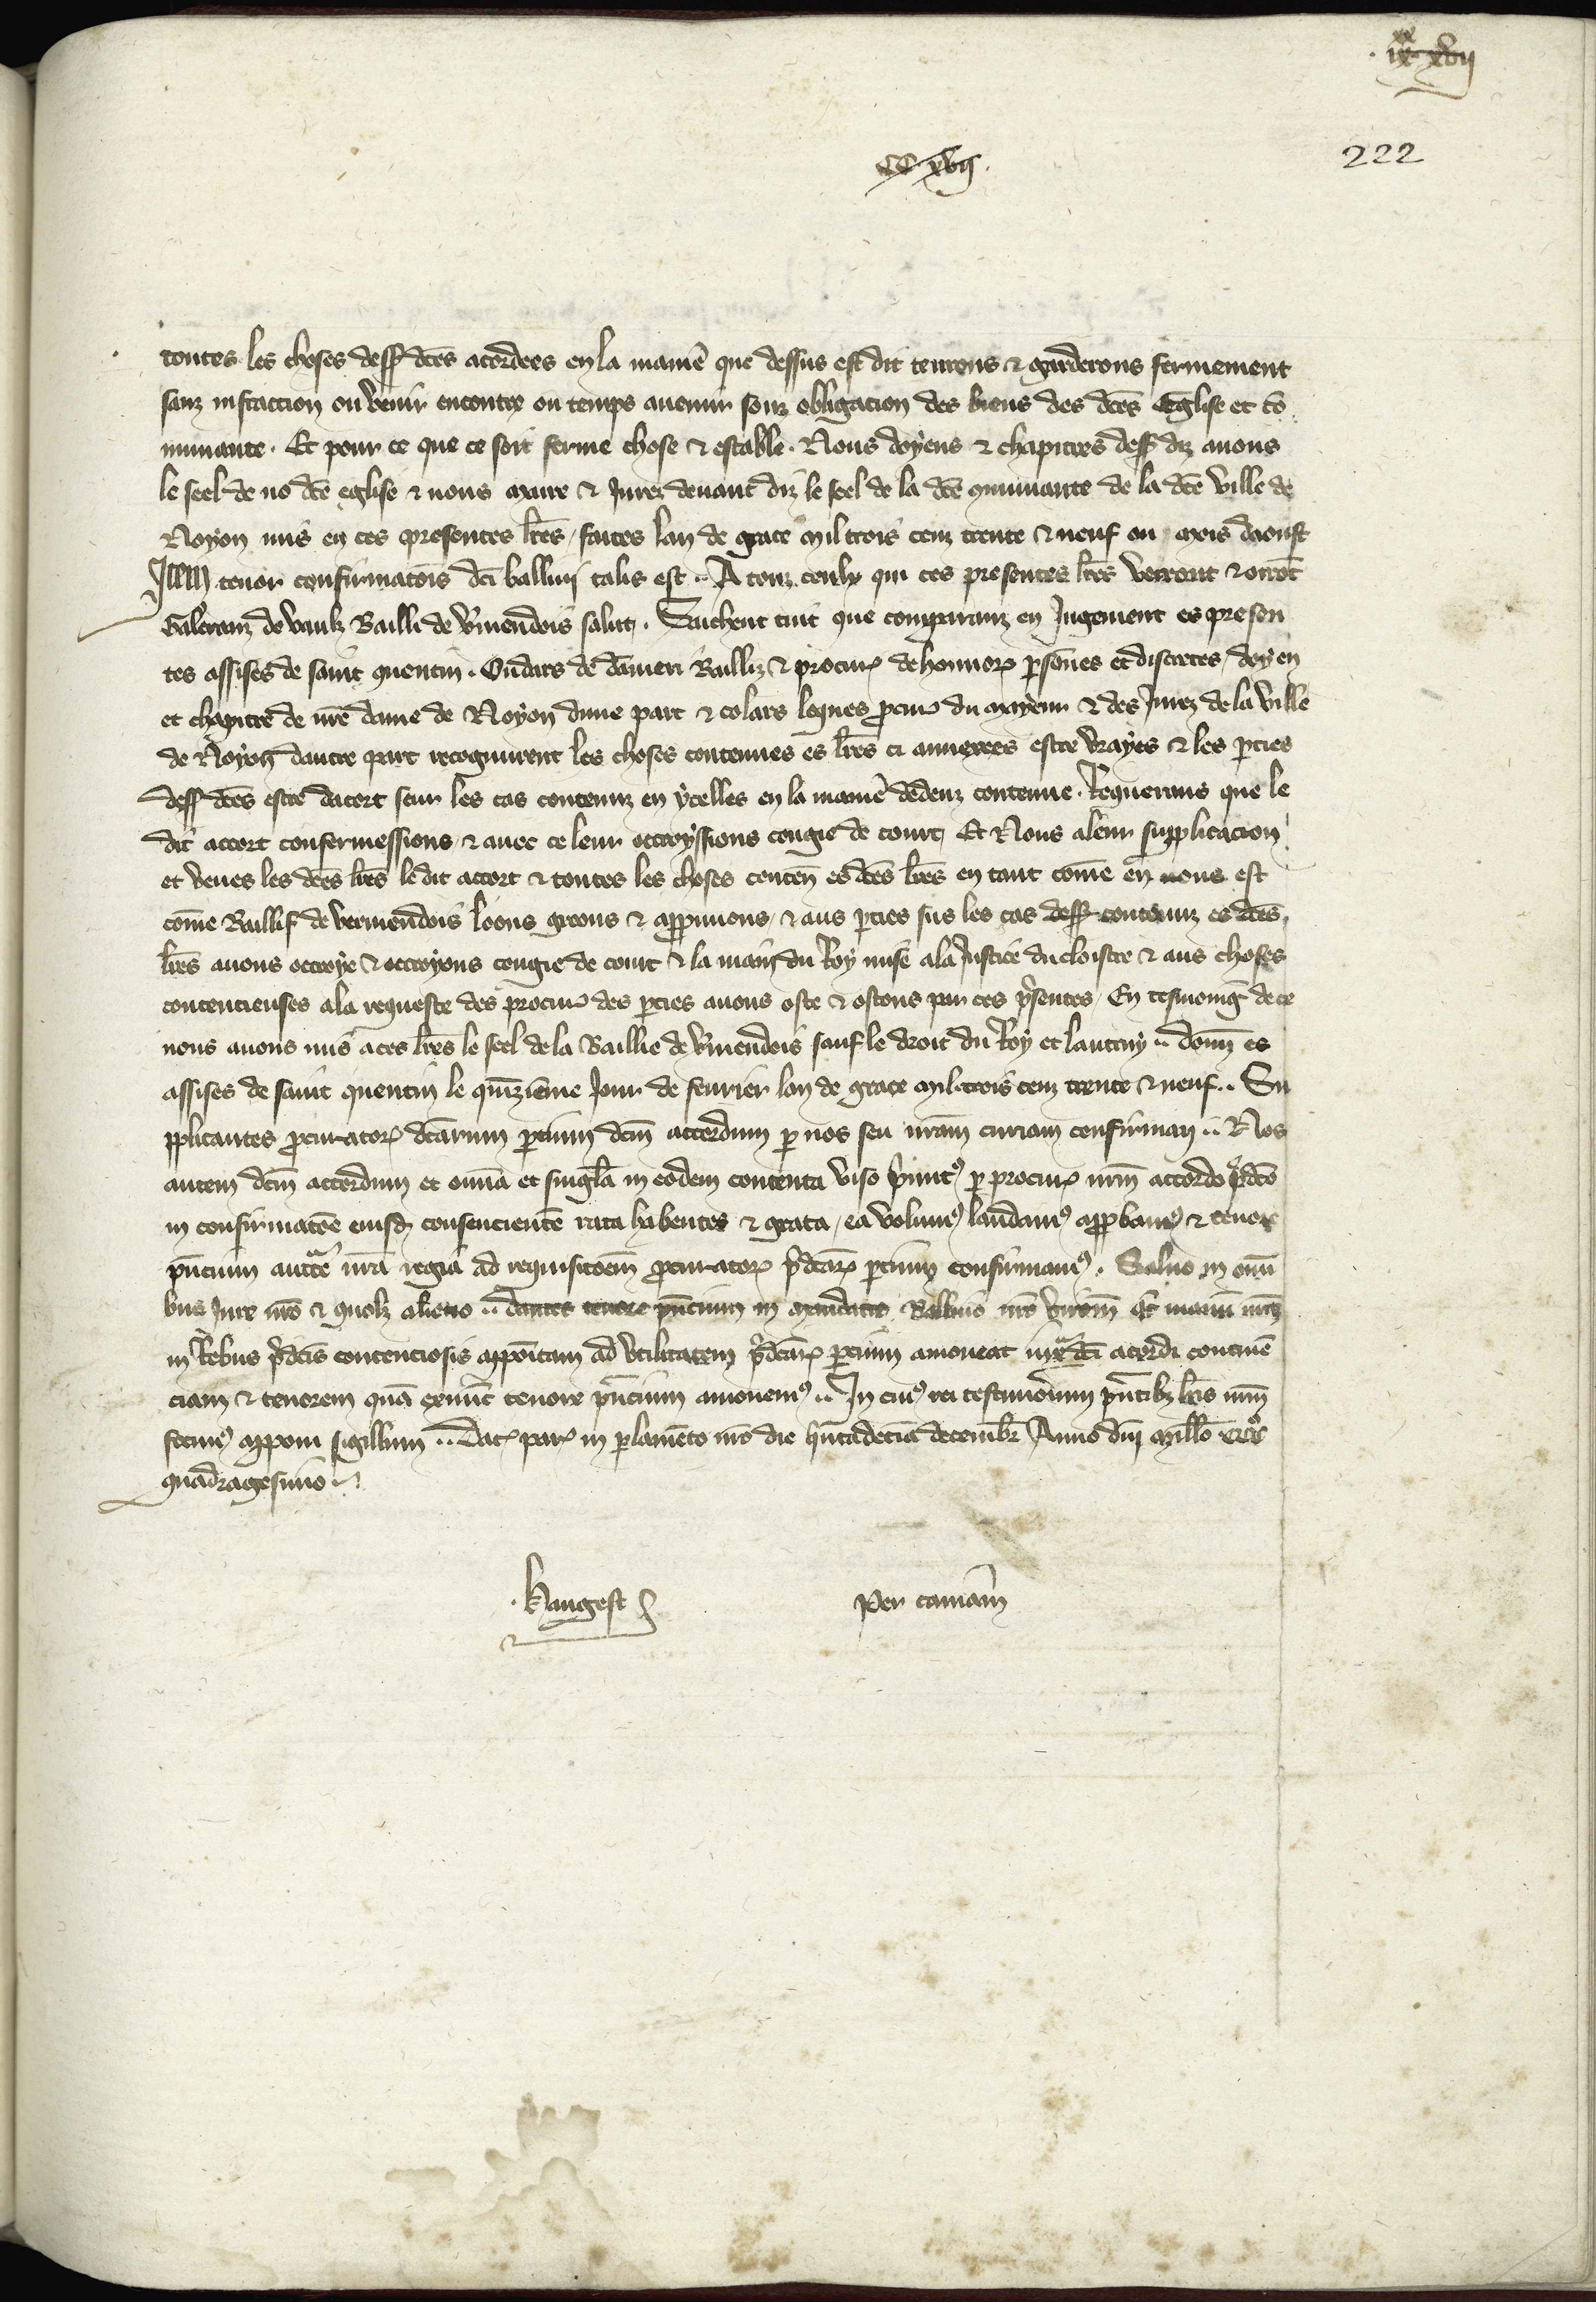 .ixxx xvii
CC xvii.
222
toutes les choses dessus dictes acordees en la maniere que dessus est dit tenrons & garderons fermement
sanz infraccion ou venir encontre ou temps auenir souz obligacion des biens des dces Eglise et co
munaute. Et pour ce que ce soit ferme chose & estable. Nous doyens & chapitres dess diz auons
le seel de no dce eglise & nous maire & Jurez deuant diz le seel de la dce communaute de la dce ville de
Noyon mis en ces presentes lres, faites lan de grace mil trois cenz trente & neuf ou mois daoust
Item tenor confirmatois dci balliui talis est .. A touz ceulx qui ces presentes lres verront & orrot
Galeranz de vaulx Bailli de vmendois salut. Sachent tuit que comparanz en Jugement es presen
tes assises de saint quentin. Oudars de Bailliz & procur de honnor persones et discretes, doyen
et chapitre de nre dame de Noyon dune part & colars leques procur du mayeur & des Jurez de la ville
de Noyon dautre part recognurent les choses contenues es lres ci annexees estre vrayes & les pties
dess dces estre dacort seur les cas contenuz en ycelles en la maniere dedenz contenue. Requerans que le
dit accort confermessions, & auec ce leur ottroyssions congie de court, Et Nous aleur supplicacion
et veues les dces lres ledit accort & toutes les choses conten es dces lres en tant come en nous est
come Baillif de vermendois loons greons & approuuons, & aus pties sus les cas dess contenuz es dces
lres auons ottroye & ottroyons congie de court & la main du Roy mise ala Justice du cloistre & aus choses
contencieuses ala requeste des procur des pties auons oste & ostons par ces psentes, En tesmoing de ce
nous auons mis aces lres le seel de la Baillie de vmendois sauf le droit du Roy et lautruy .. donn es
assises de saint quentin le quinzieme Jour de feurier lan de grace mil trois cenz trente & neuf .. Su
pplicantes procurator dcarum pcium dcm accordum p nos seu nram curiam confirmari .. Nos
autem dcm accordum et omia et singla in eodem contenta viso pmit p procur nrm accordo pdco
in confirmatoe eiusd consenciente rata habentes & grata, ea volum laudam approbam & tenore
pncium auctte nra regia ad requisitoem procurator pdcar pcium confirmam. Saluo in omi
bus Jure nro & quolz alieno .. dantes tenore pncium in mandatis Balliuo nro virom qd manu nram
in Rebus pdcis contenciosis appoitam ad vtilitatem pdcar pcium amoueat iux dci acordi continen
ciam & tenorem qua exnuc tenore pncium amouem .. In cui rei testimonium pntibz lris nrm
fecim apponi sigillum .. Dat par in parlameto nro die quitadecia decembr Anno dni millo CCCo
quadragesimo ..
.Hangest
Per camam